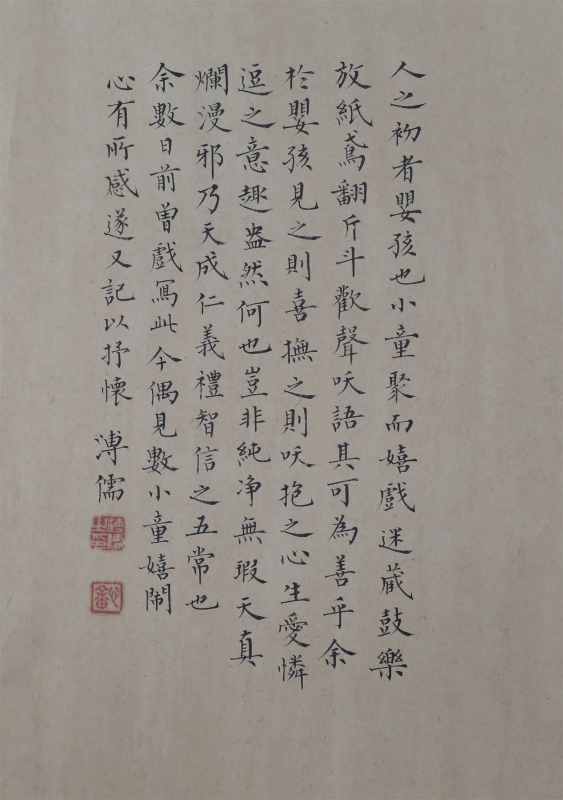 人之初者嬰孩也小童聚而嬉戲迷蔵鼓樂
放紙鳶翻斤斗歡聲咲語其可為善乎余
於嬰孩見之則喜撫之則咲抱之心生愛憐
逗之意趣盎然何也豈非純净無瑕天真
爛漫邪乃天成仁義禮智信之五常也
余數日前曾戲寫此今偶見數小童嬉鬧
心有所感遂又記以抒懷 溥儒